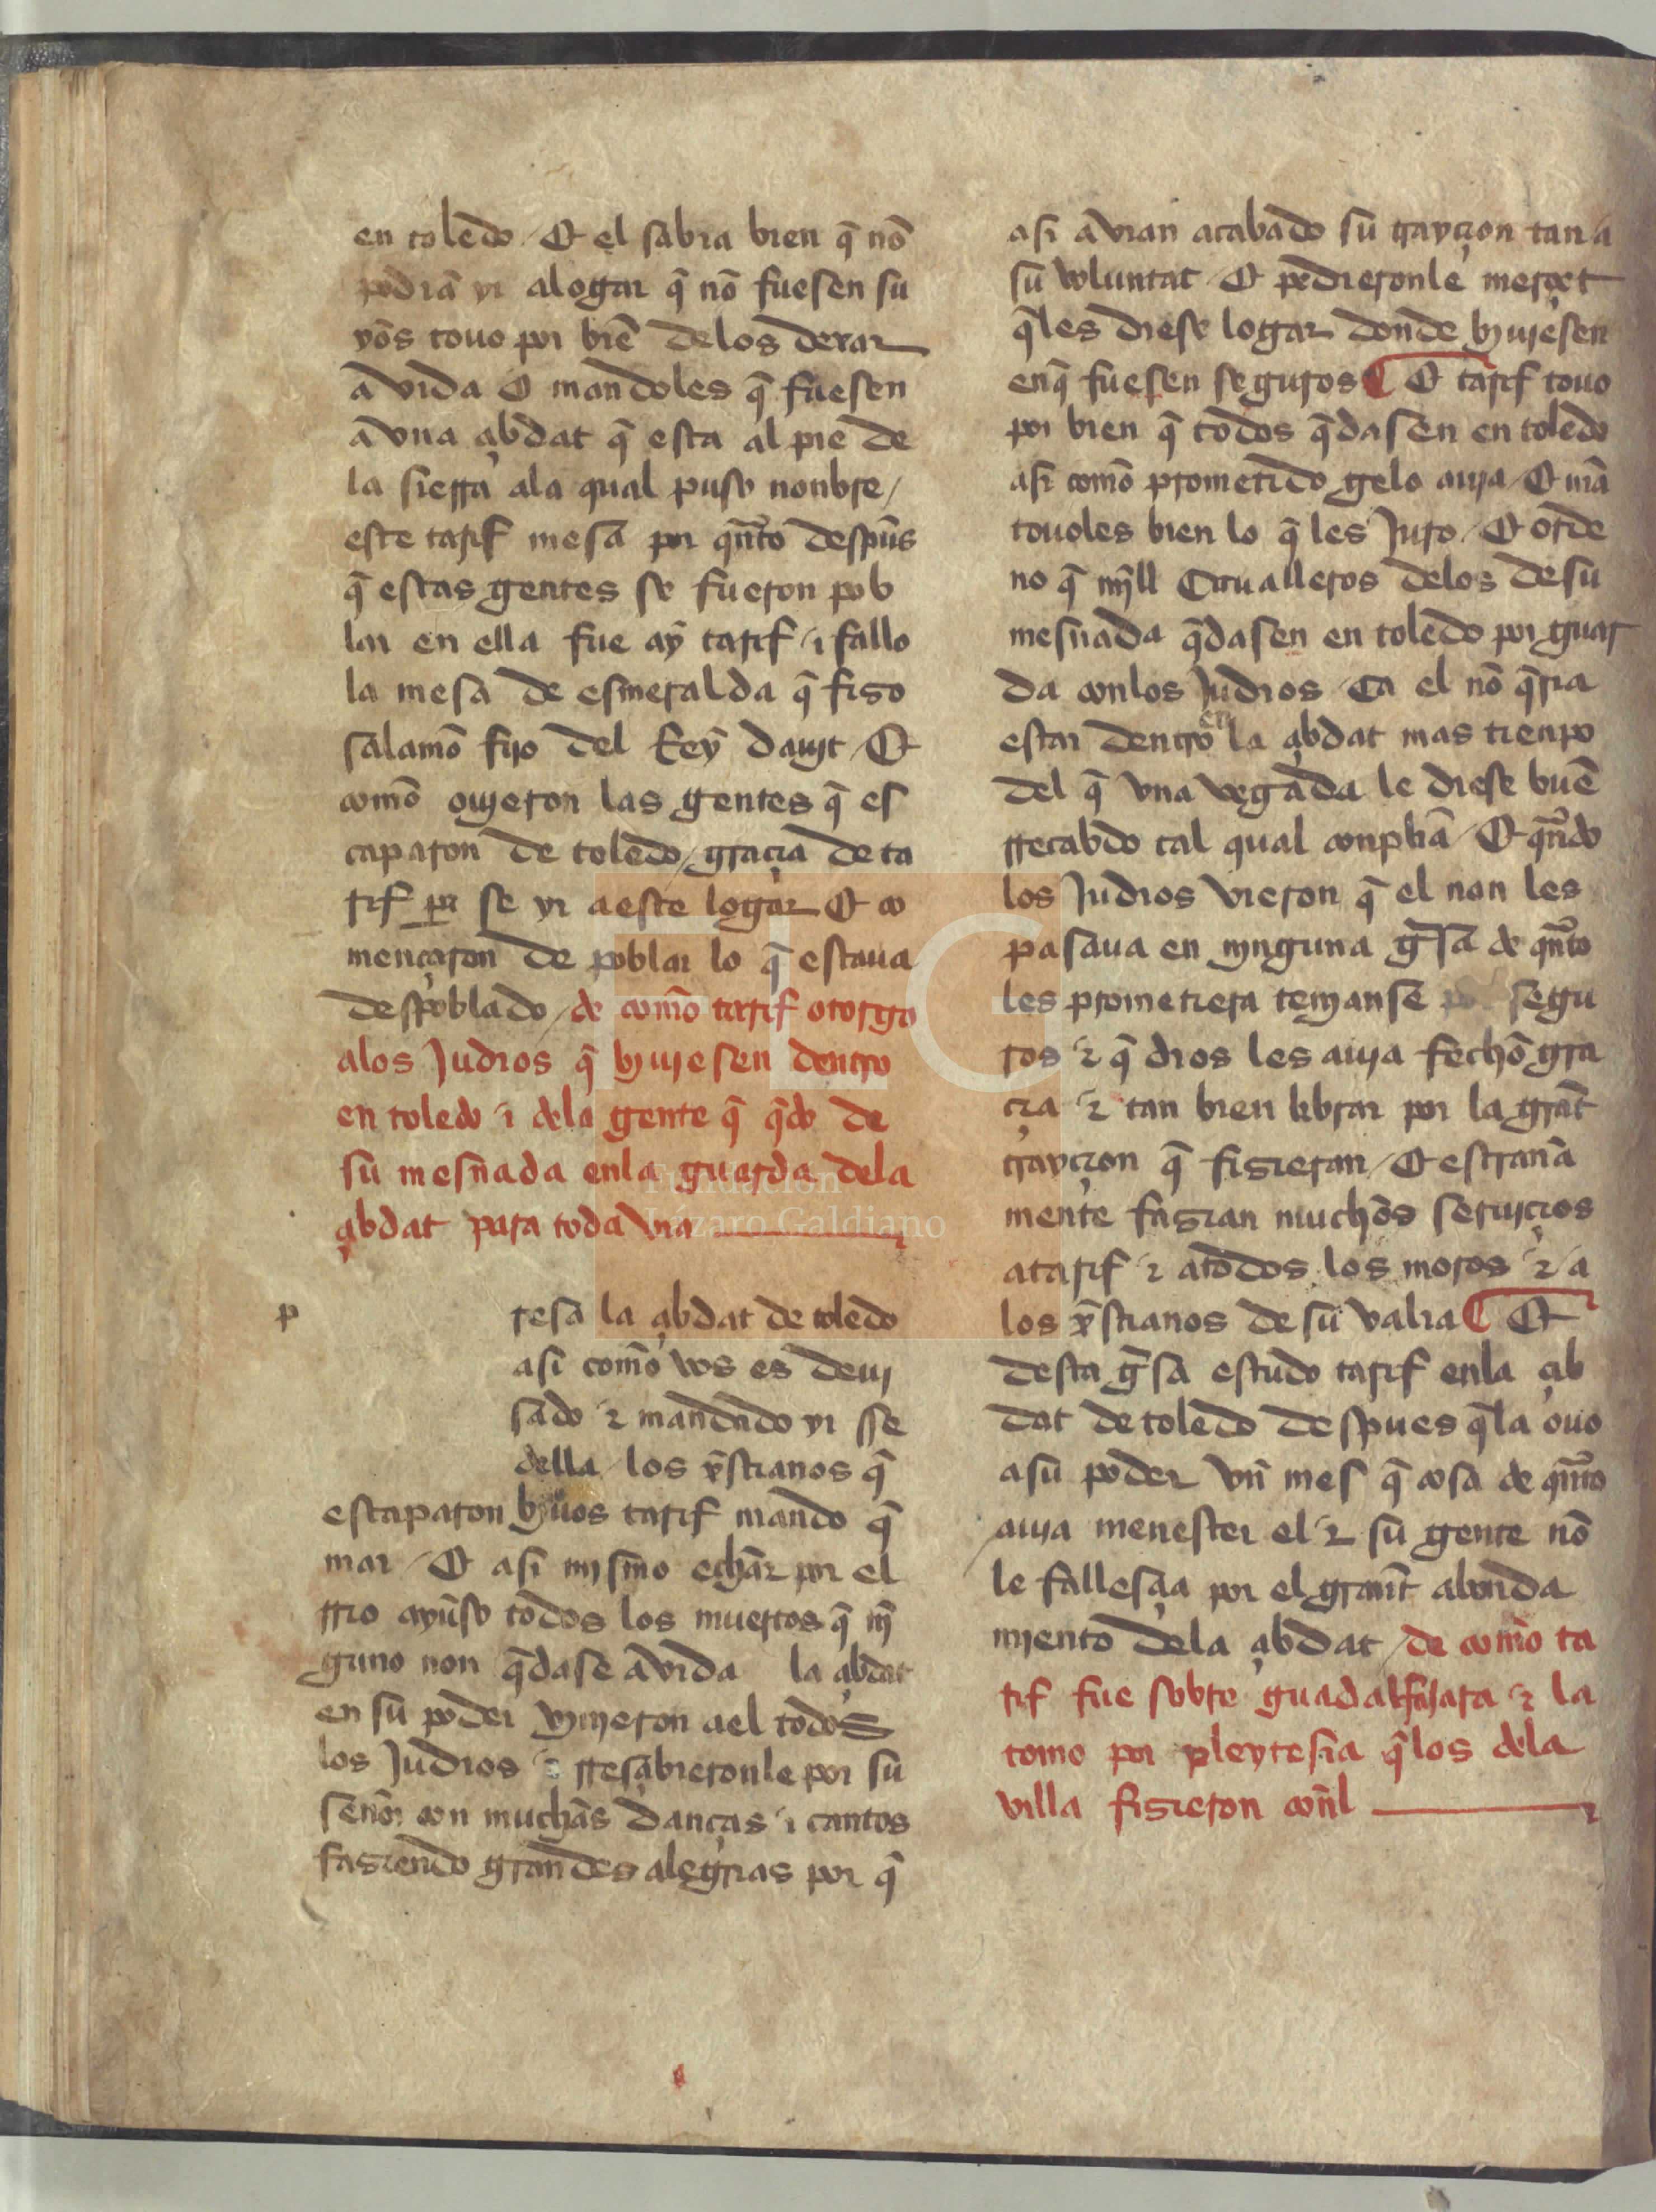 en toledo / Et el sabia bien q̃ nõ
podriã yr alogar q̃ nõ fuesen su
yõs touo por biẽ delos dexar
a vida E mandoles q̃ fuesen
a vna çibdat q̃ esta al pie de
la sierra ala qual puso nonbre /
este tarif mesa por quãto despues
q̃ estas gentes se fueron pob
lar en ella fue aỹ tarif / ⁊ fallo
la mesa de esmeralda q̃ fiso
salamõ fijo del Reỹ dauit / Et
comõ ouieron las gentes q̃ es
caparon de toledo / graçia de ta
rif par se yr a este logar Et co
mençaron de poblar lo q̃ estaua
despoblado / de comõ tarif otorgo
alos Judios q̃ biuiesen dentro
en toledo ⁊ dela gente q̃ q̃do de
su mesñada enla guarda dela
çibdat para toda via
p
resa la çibdat de toledo
asi comõ vos es deui
sado ⁊ mandãdo yr sse
della / los xp̃stianos q̃
escaparon biuos tarif mando q̃
mar / Et asi mismo echar por el
rrio ayuso todos los muertos q̃ nĩ
guno non q̃dase a vida la çibdat
en su poder vinieron a el todos
los Judios ⁊ rresçibieronle por su
señor con muchas danças ⁊ cantos
fasiendo grandes alegrias por q̃
asi avian acabado su trayçion tan a
su voluntat / Et pedieronle merçet
q̃les diese logar donde biuiesen
enq̃ fuesen seguros ¶ Et tarif touo
por bien q̃ todos q̃dasen en toledo
asi comõ prometido gelo auia / Et mã
touoles bien lo q̃ les Juro / Et orde
no q̃ mĩll Caualleros delos de su
mesnada q̃dasen en toledo por guar
da conlos Judios / Ca el nõ q̃ria
estar dentro en la çibdat mas tienpo
del q̃ vna vegada le diese buẽ
rrecabdo tal qual conpliã / Et quãdo
los Judios vieron q̃ el non les
pasaua en ninguna g̃sa de quãto
les prometiera tenianse por segu
ros ⁊ q̃ dios les auia fechõ gra
çia ⁊ tan bien librar por la grãt
trayçion q̃ fisieran / Et estrañã
mente fasian muchos seruiçios
atarif ⁊ atodos los moros ⁊ a
los xp̃stianos de su valia ¶ Et
desta g̃sa estudo tarif enla çib
dat de toledo despues q̃la ouo
asu poder vñ mes q̃ cosa de quãto
auia menester el ⁊ su gente nõ
le fallesçia por el grant abonda
miento dela çibdat / de comõ ta
rif fue sobre guadalfajara ⁊ la
tomo por pleytesia q̃ los dela
villa fisieron conel
Fundación
Lázaro Galdiano